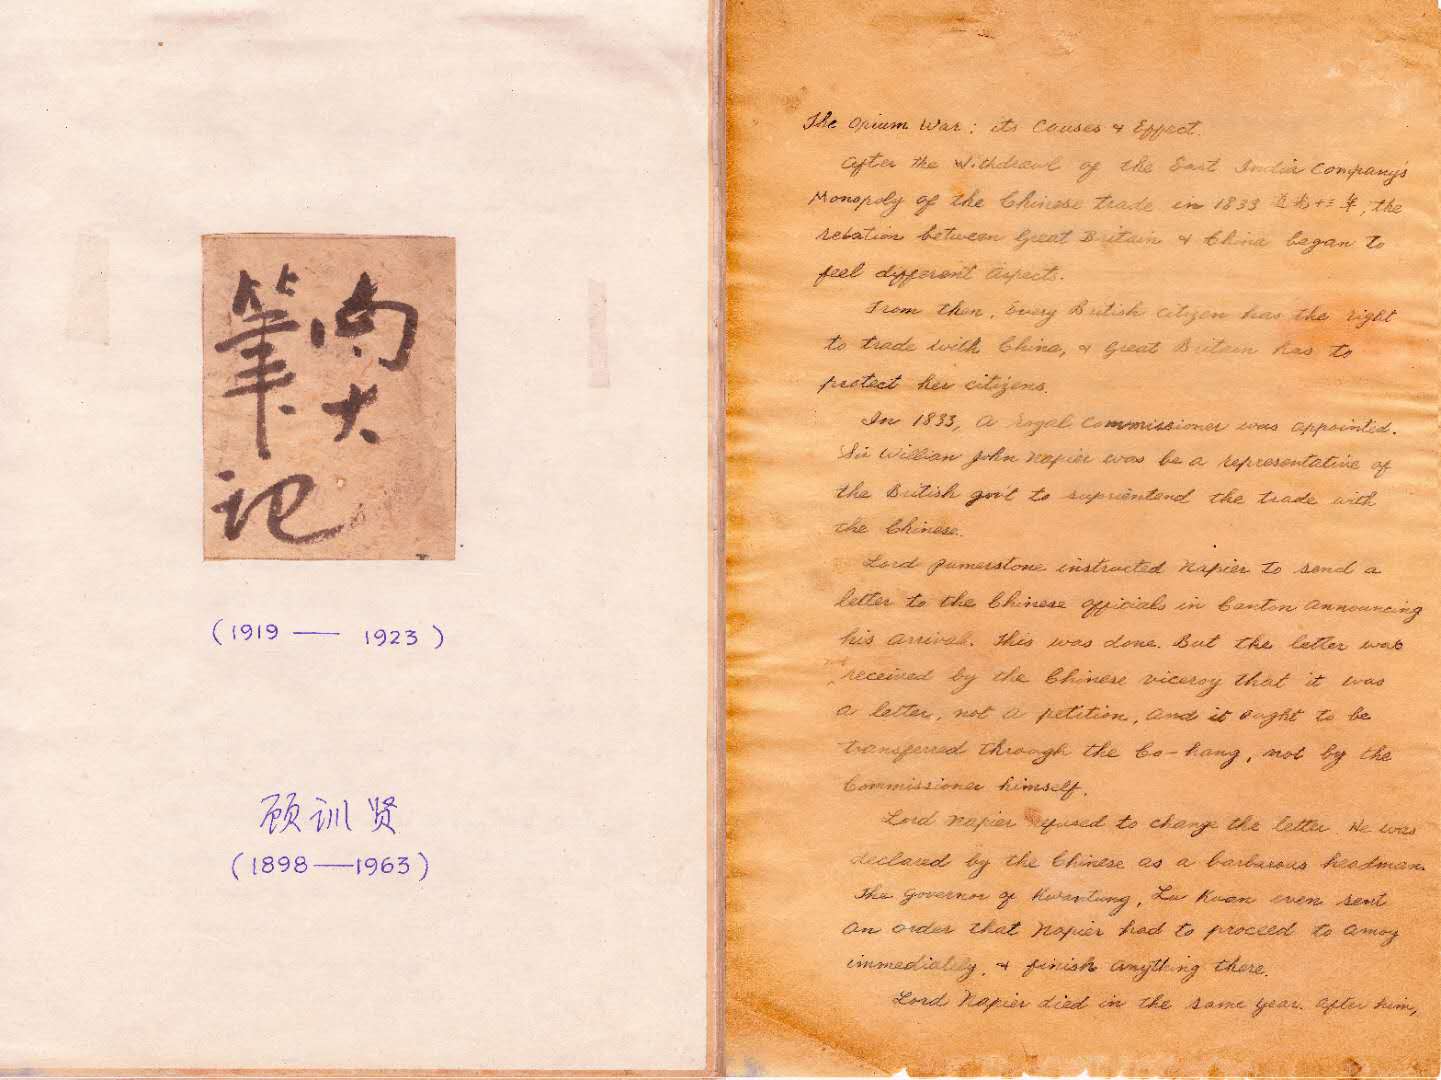 南大
筆記
(1919 — 1923)
顾训贤
(1898—1963)
The Opium War: its Causes & Effect.
After the Withdrawl of the East India Company's
Monopoly of the Chinese trade in 1833 道光十三年, the
relation between Great Britain & China began to
feel different aspects.
From then, Every British citizen has the right
to trade with China, & Great Britain has to
protect her citizens.
In 1833, a royal commissioner was appointed.
Sir William John Napier was be a representative of
the British gov't to suprientend the trade with
the Chinese.
Lord Pamerstone instructed Napier to send a
letter to the Chinese officials in Canton announcing
his arrival. This was done. But the letter was
received by the Chinese viceroy that it was
a letter, not a petition, and it ought to be
transferred through the Co-hang, not by the
Commissioner himself.
Lord Napier refused to change the letter. He was
declared by the Chinese as a barbarous headman.
The Governor of Kwantung, Lu Kuan even sent
an order that Napier had to proceed to Amoy
immediately, & finish anything there.
Lord Napier died in the same year. After him,